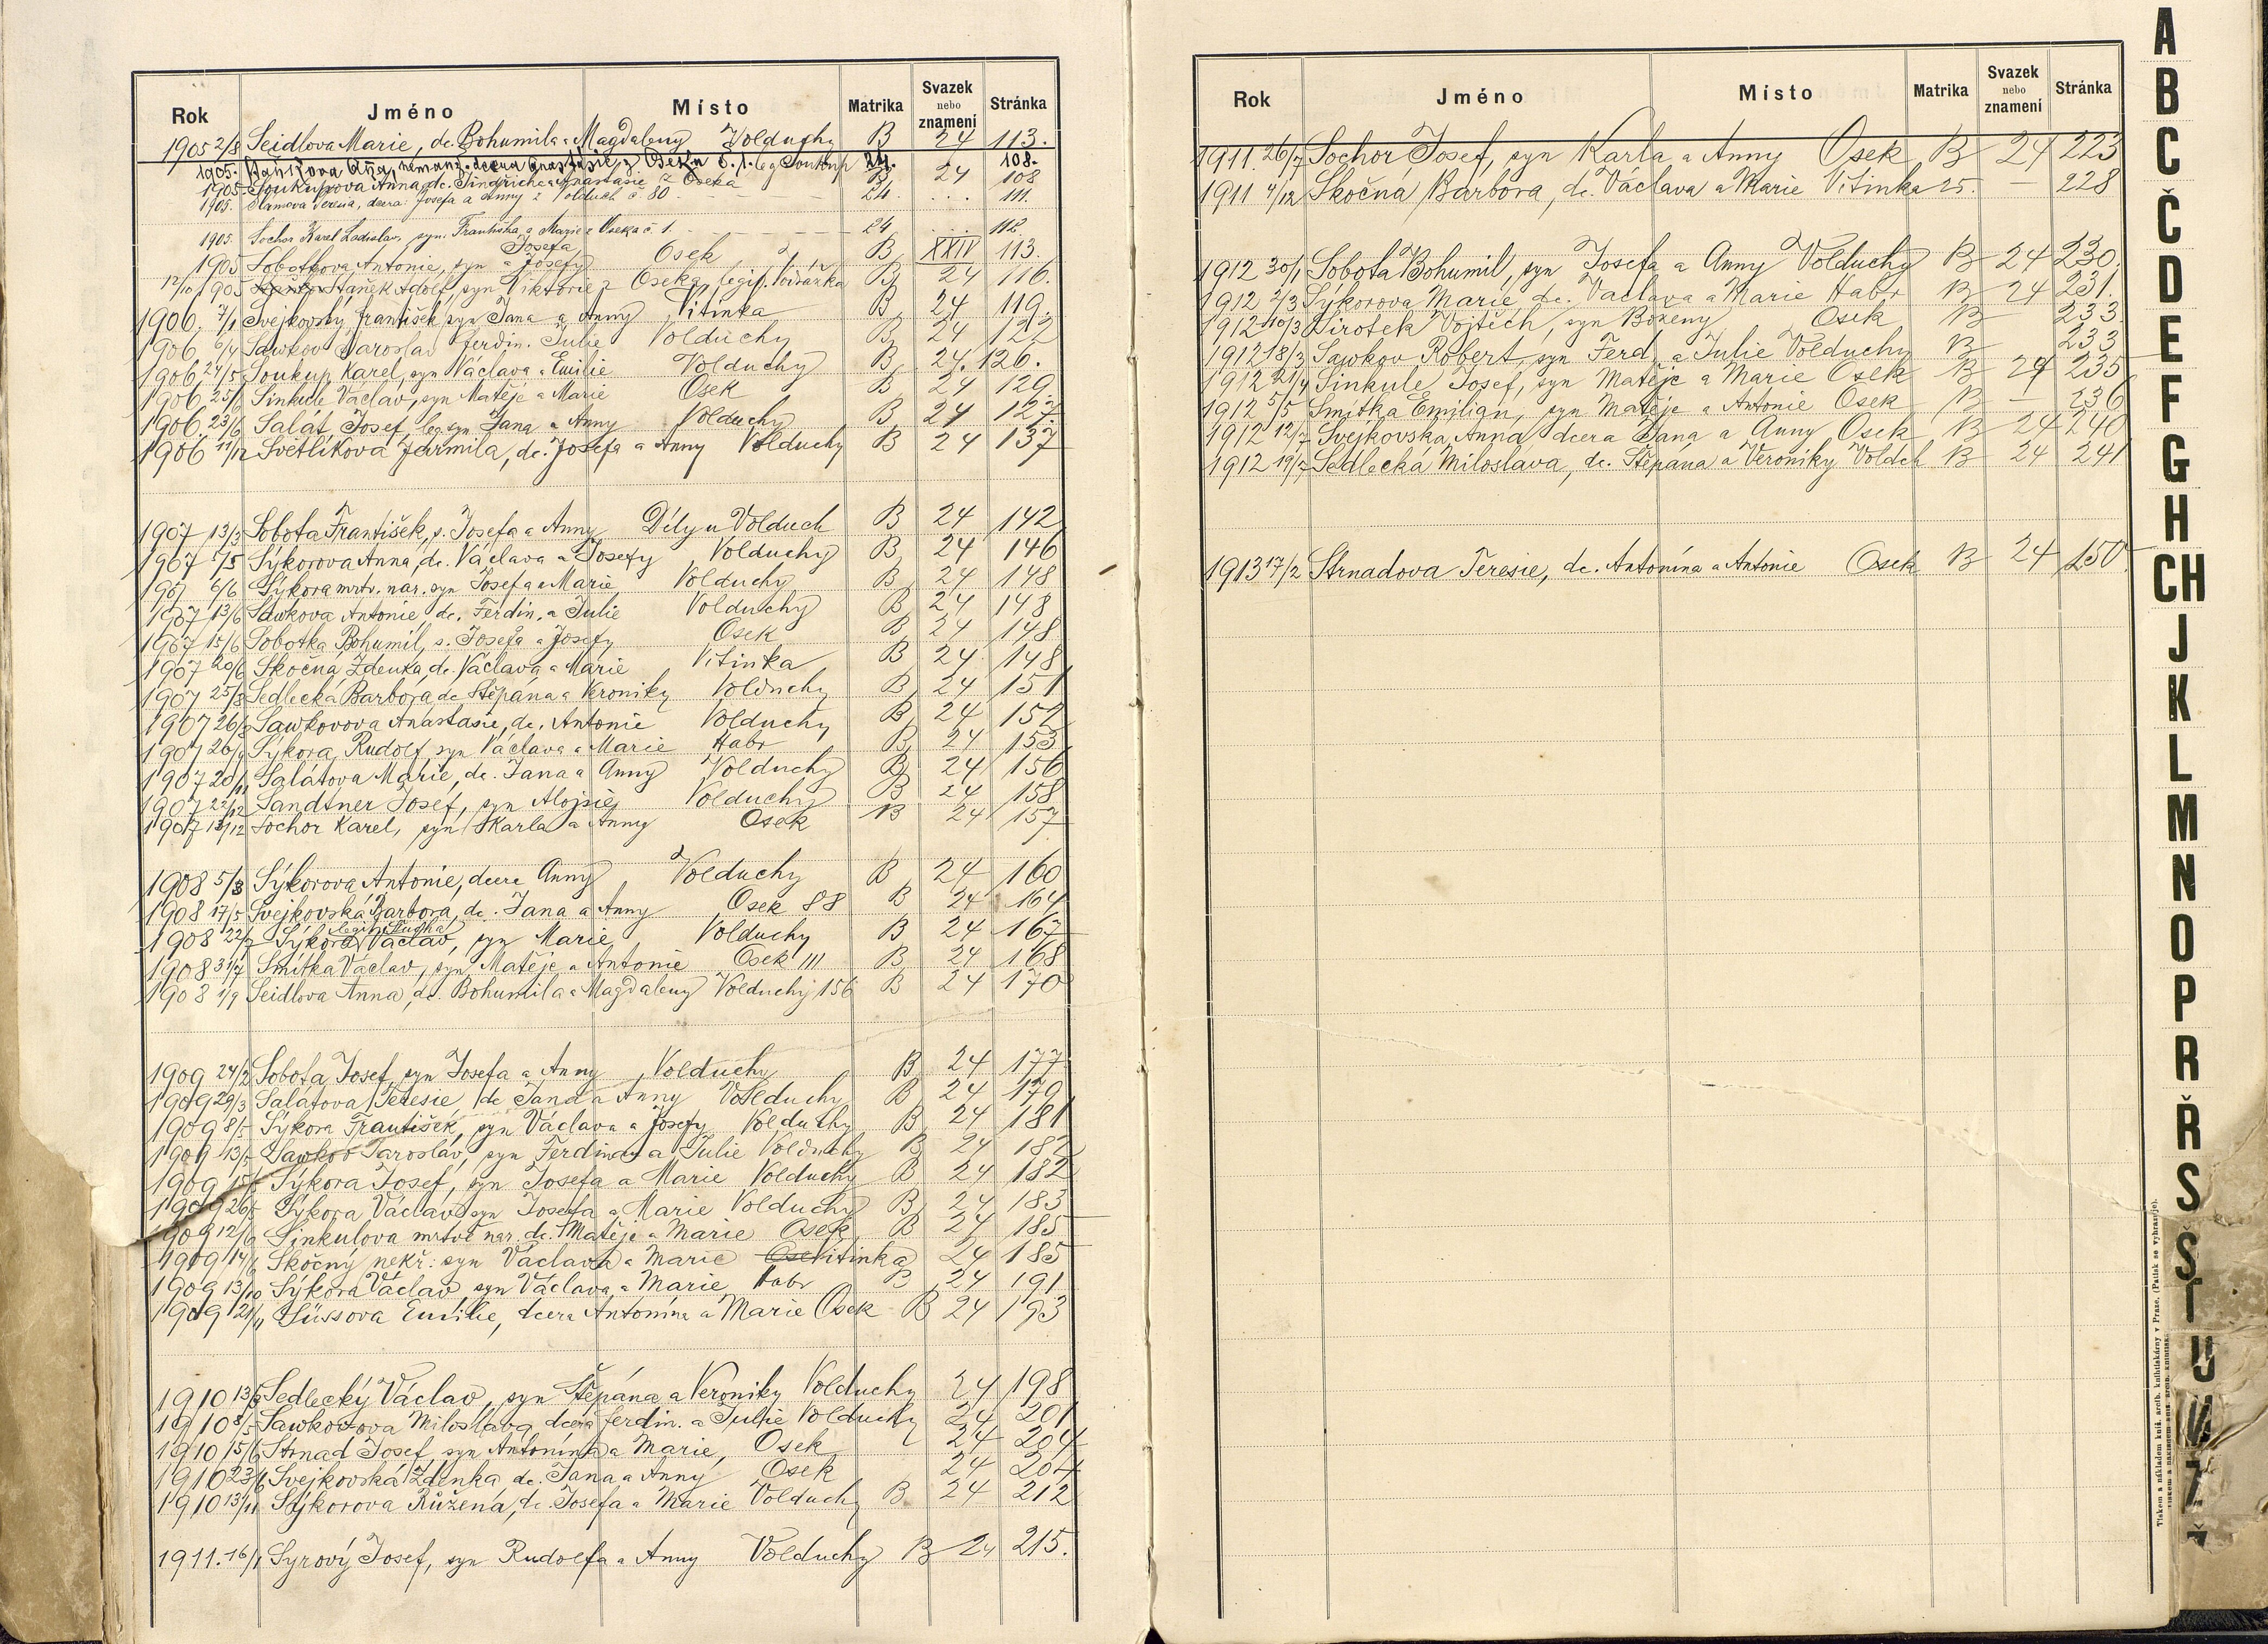 Rok Jméno Místo Matrika Svazek nebo znamení Stránka
1905 2/8 Seidlova Marie, dc. Bohumila a Magdaleny Volduchy B 24 113.
1905. nemanž. dcera Anastasie z Oseka č. 1. leg. Soukup 24. 108.
1905 Soukupova Anna, dc. Jindřicha a Anastasie z Oseka B 24 108
1905. Slamova Teresia, dcera Josefa a Anny z Volduch č 80 24. ... 111.
1905. Sochor Karel Ladislav, syn Františka a Marie z Oseka č. 1. 24 ... 112.
1905 Sobotkova Antonie, syn Josefa a Josefy Osek B XXIV 113.
12/10 1905 Staněk Adolf, syn Viktorie z Oseka legit. B 24 116.
1906. 7/1 Svejkovský František syn Jana a Anny Vitinka B 24 119.
1906 6/4 Sawkov Jaroslav Ferdin. Julie Volduchy B 24 122
1906 24/5 Soukup Karel, syn Václava a Emilie Volduchy B 24. 126.
1906 25/6 Sinkule Václav, syn Matěje a Marie Osek B 24 129
1906 23/6 Salát Josef leg. syn Jana a Anny Volduchy B 24 127
1906 11/12 Svetlíková Jarmila, dc. Josefa a Anny Volduchy B 24 137
1907 13/3 Sobota František, s. Josefa a Anny Díly u Volduch B 24 142
1907 1/5 Sýkorova Anna, dc. Václava a Josefy Volduchy B 24 146
1907 6/6 Sýkora mrtv. nar. syn Josefa a Marie Volduchy B 24 148
1907 13/6 Sawkova Antonie dc. Ferdin. a Julie Volduchy B 24 148
1907 15/6 Sobotka Bohumil, s. Josefa a Josefy Osek B 24 148
1907 20/6 Skočna Zdenka, dc. Václava a Marie Vitinka B 24 148
1907 25/8 Sedlecká Barbora dc Štěpána a Veroniky Volduchy B 24 151
1907 26/8 Sawkovova Anastasie, dc. Antonie Volduchy B 24 152
1907 26/9 Sýkora Rudolf syn Václava a Marie Habr B 24 153
1907 20/11 Salátova Marie, dc. Jana a Anny Volduchy B 24 156
1907 22/12 Sandtner Josef, syn Aloisie Volduchy B 24 158
1907 13/12 Sochor Karel, syn Karla a Anny Osek B 24 157
1908 5/3 Sýkorova Antonie, dcera Anny Volduchy B 24 160
1908 17/5 Svejkovská Barbora, dc. Jana a Anny Osek 88 B 24 164
1908 22/7 Sýkora Václav, syn Marie Volduchy B 24 167
1908 31/7 Smitka Václav, syn Matěje a Antonie Osek 111 B 24 168
1908 1/9 Seidlova Anna, dc. Bohumila a Magdaleny Volduchy 156 B 24 170
1909 24/2 Sobota Josef syn Josefa a Anny Volduchy B 24 177
1909 29/3 Salátova Teresie dc Jana a Anny Volduchy B 24 179
1909 8/5 Sýkora František, syn Václava a Josefy Volduchy B 24 181
1909 13/5 Sawkov Jaroslav, syn Ferdinanda a Julie Volduchy B 24 182
1909 15/5 Sýkora Josef, syn Josefa a Marie Volduchy B 24 182
1909 26/5 Sýkora Václav syn Josefa a Marie Volduchy B 24 183
1909 12/6 Sinkulova mrtvě nar. dc. Matěje a Marie Osek B 24 185
1909 14/6 Skočný nekř. syn Václava a Marie Vitinka 24 185
1909 13/10 Sýkora Václav syn Václava a Marie Habr B 24 191
1909 21/11 Süssova Emilie, dcera Antonína a Marie Osek B 24 193
1910 13/3 Sedlecký Václav, syn Štěpána a Veroniky Volduchy 24 198
1910 8/5 Sawkovova Miloslava dcera Ferdin. a Julie Volduchy 24 201
1910 15/6 Strnad Josef, syn Antonína a Marie, Osek 24 204
1910 23/6 Svejkovská Zdenka dc. Jana a Anny Osek 24 204
1910 13/11 Sýkorova Růžena, dc. Josefa a Marie Volduchy B 24 212
1911. 16/1 Syrový Josef, syn Rudolfa a Anny Volduchy B 24 215.
Rok Jméno Místo Matrika Svazek nebo znamení Stránka
1911. 26/7 Sochor Josef, syn Karla a Anny Osek B 24 223
1911 4/12 Skočná Barbora, dc. Václava a Marie Vitinka 25. — 228
1912 30/1 Sobota Bohumil, syn Josefa a Anny Volduchy B 24 230.
1912 2/3 Sýkorova Marie, dc. Václava a Marie Habr B 24 231.
1912 10/3 Sirotek Vojtěch, syn Boženy Osek B — 233
1912 18/3 Sawkov Robert, syn Ferd. a Julie Volduchy B 233
1912 21/4 Sinkule Josef, syn Matěje a Marie Osek B 24 235
1912 5/5 Smitka Emilian, syn Matěje a Antonie Osek B — 236
1912 12/7 Svejkovska Anna dcera Jana a Anny Osek B 24 240
1912 19/7 Sedlecká Miloslava, dc. Štěpána a Veroniky Voldch B 24 241
1913 17/2 Strnadova Teresie, dc. Antonína a Antonie Osek B 24 150.
A
B
C
Č
D
E
F
G
H
CH
J
K
L
M
N
O
P
R
Ř
S
Š
T
U
V
Z
Ž